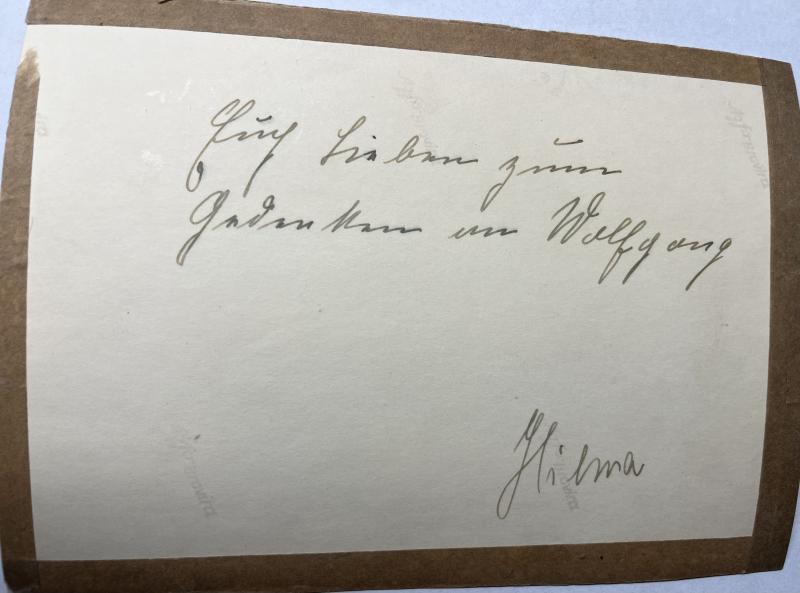 Euch Lieben zum
Gedenken an Wolfgang
Hilma